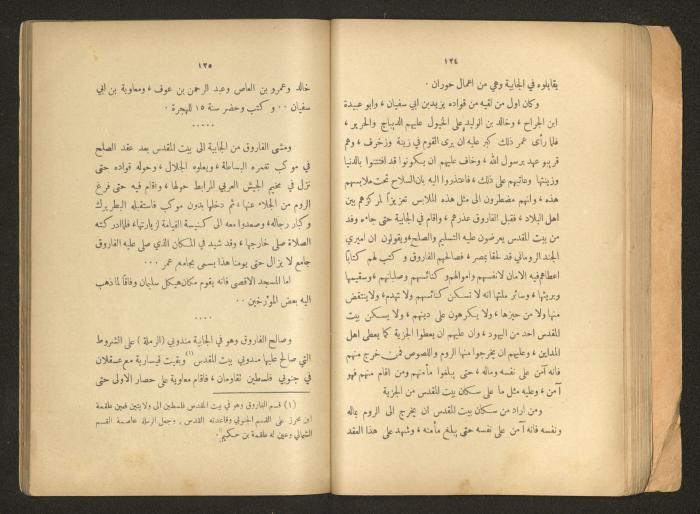 ١٢٤
يقابلوه في الجابية وهي من اعمال حوران ٠
وكان اول من لقيه من قواده يزيد بن ابي سفيان ، وابو عبيدة
ابن الجراح ، وخالد بن الوليد على الخيول عليهم الديباج والحرير ،
فلما رأى عمر ذلك كبر عليه ان يرى القوم في زينة وزخرف ، وهم
قريبو عهد برسول الله ، وخاف عليهم ان يكونوا قد افتتنوا بالدنيا
وزينتها وعاتبهم على ذلك ، فاعتذروا اليه بان السلاح تحت ملابسهم
هذه ، وانهم مضطرون الى مثل هذه الملابس تعزيزاً لمركزهم بين
اهل البلاد ، فقبل الفاروق عذرهم ، واقام في الجابية حتى جاءه وفد
من بيت المقدس يعرضون عليه التسليم والصلح ، ويقولون ان اميري
الجند الروماني قد لحقا بمصر ، فصالحهم الفاروق و كتب لهم كتاباً
اعطاهم فيه الامان لانفسهم واموالهم و كنائسهم وصلبانهم ، وسقيمها
وبريئها ، وسائر ملتها انه لا تسكن كنائسهم ولا تهدم ، ولا ينتقض
منها ولا من حيزها ، ولا يكرهون على دينهم ، ولا يسكن بيت
المقدس احد من اليهود ، وان عليهم ان يعطوا الجزية كما يعطي اهل
المداين ، وعليهم ان يخرجوا منها الروم واللصوص فمن خرج منهم
فانه آمن على نفسه وماله ، حتى يبلغوا مأمنهم ومن اقام منهم فهو
آمن ، وعليه مثل ما على سكان بيت المقدس من الجزية
ومن اراد من سكان بيت المقدس ان يخرج الى الروم بماله
ونفسه فانه آمن على نفسه حتى يبلغ مأمنه ، وشهد على هذا العقد
١٢٥
خالد وعمرو بن العاص وعبد الرحمن بن عوف ، ومعاوية بن ابي
سفيان ٠٠ و كتب وحضر سنة ١٥ للهجرة ٠
٠٠٠٠٠
ومشى الفاروق من الجابية الى بيت المقدس بعد عقد الصلح
في موكب تغمره البساطة ، ويعلوه الجلال ، وحوله قواده حتى
نزل في مخيم الجيش العربي المرابط حولها ، واقام فيه حتى فرغ
الروم من الجلاء عنها ، ثم دخلها بدون موكب فاستقبله البطريرك
و كبار رجاله ، وصعدوا معه الى كنيسة القيامة لزيارتها ، فلما ادركته
الصلاة صلى خارجها ، وقد شيد في المكان الذي صلى عليه الفاروق
جامع لا يزال حتى يومنا هذا يسمى بجامع عمر ٠٠٠
اما المسجد الاقصى فانه يقوم مكان هيكل سليمان وفاقاً لما ذهب
اليه بعض المؤرخين ٠٠
٠٠٠٠
وصالح الفاروق وهو في الجابية مندوبي ( الرملة ) على الشروط
التي صالح عليها مندوبي بيت المقدس (١) وبقيت قيسارية مع عسقلان
في جنوبي فلسطين تقاومان ، فاقام معاوية على حصار الاولى حتى
(١) قسم الفاروق وهو في بيت المقدس فلسطين الى ولايتين فعين علقمة
ابن محرز على القسم الجنوبي وقاعدته القدس ، وجعل الرملة عاصمة القسم
الشمالي وعين له علقمة بن حكيم